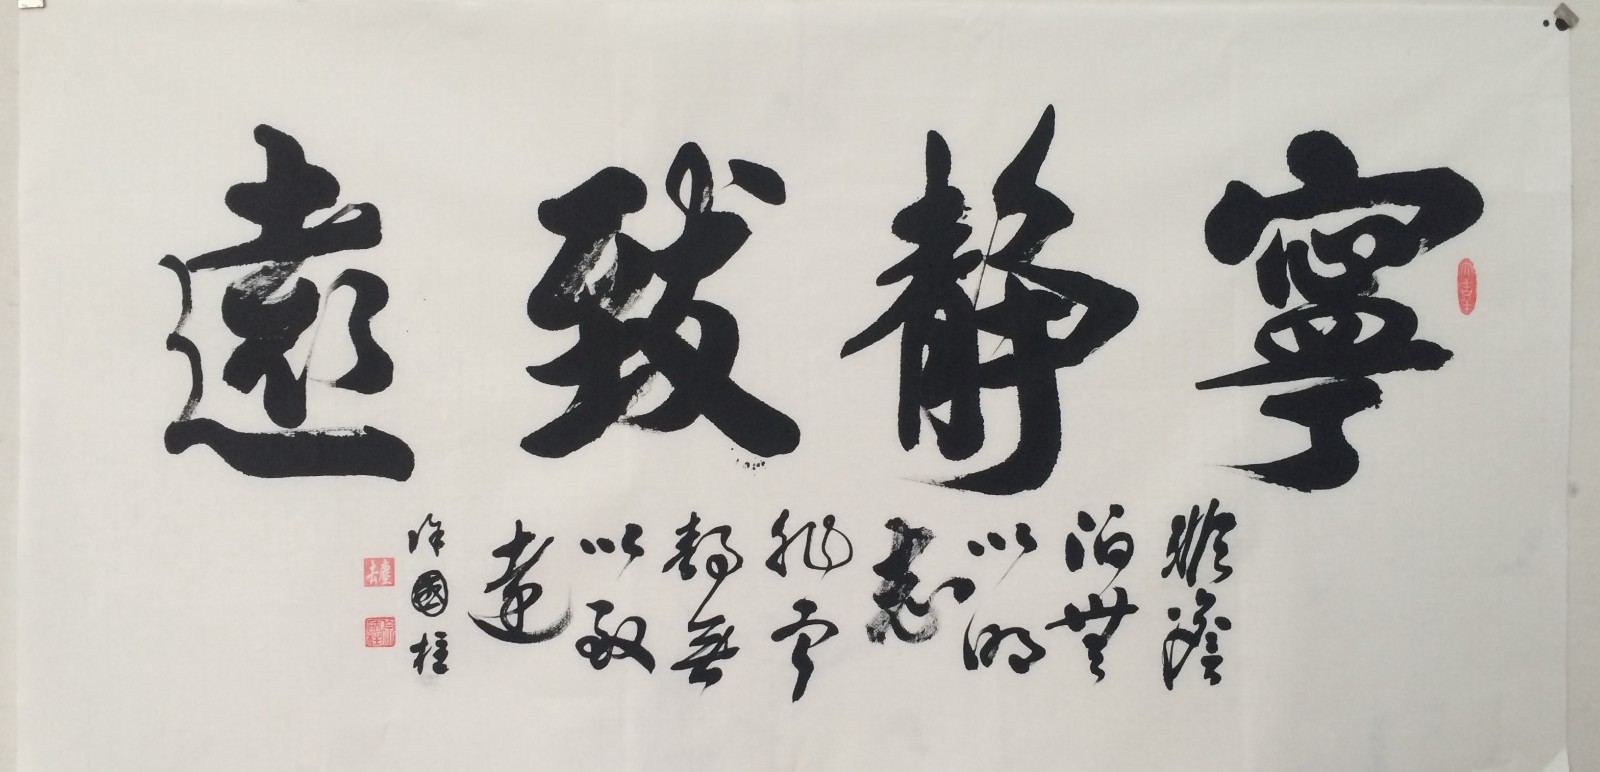 寧靜致遠
非澹
泊無
以明
志
非寧
靜無
以致
遠
許國柱